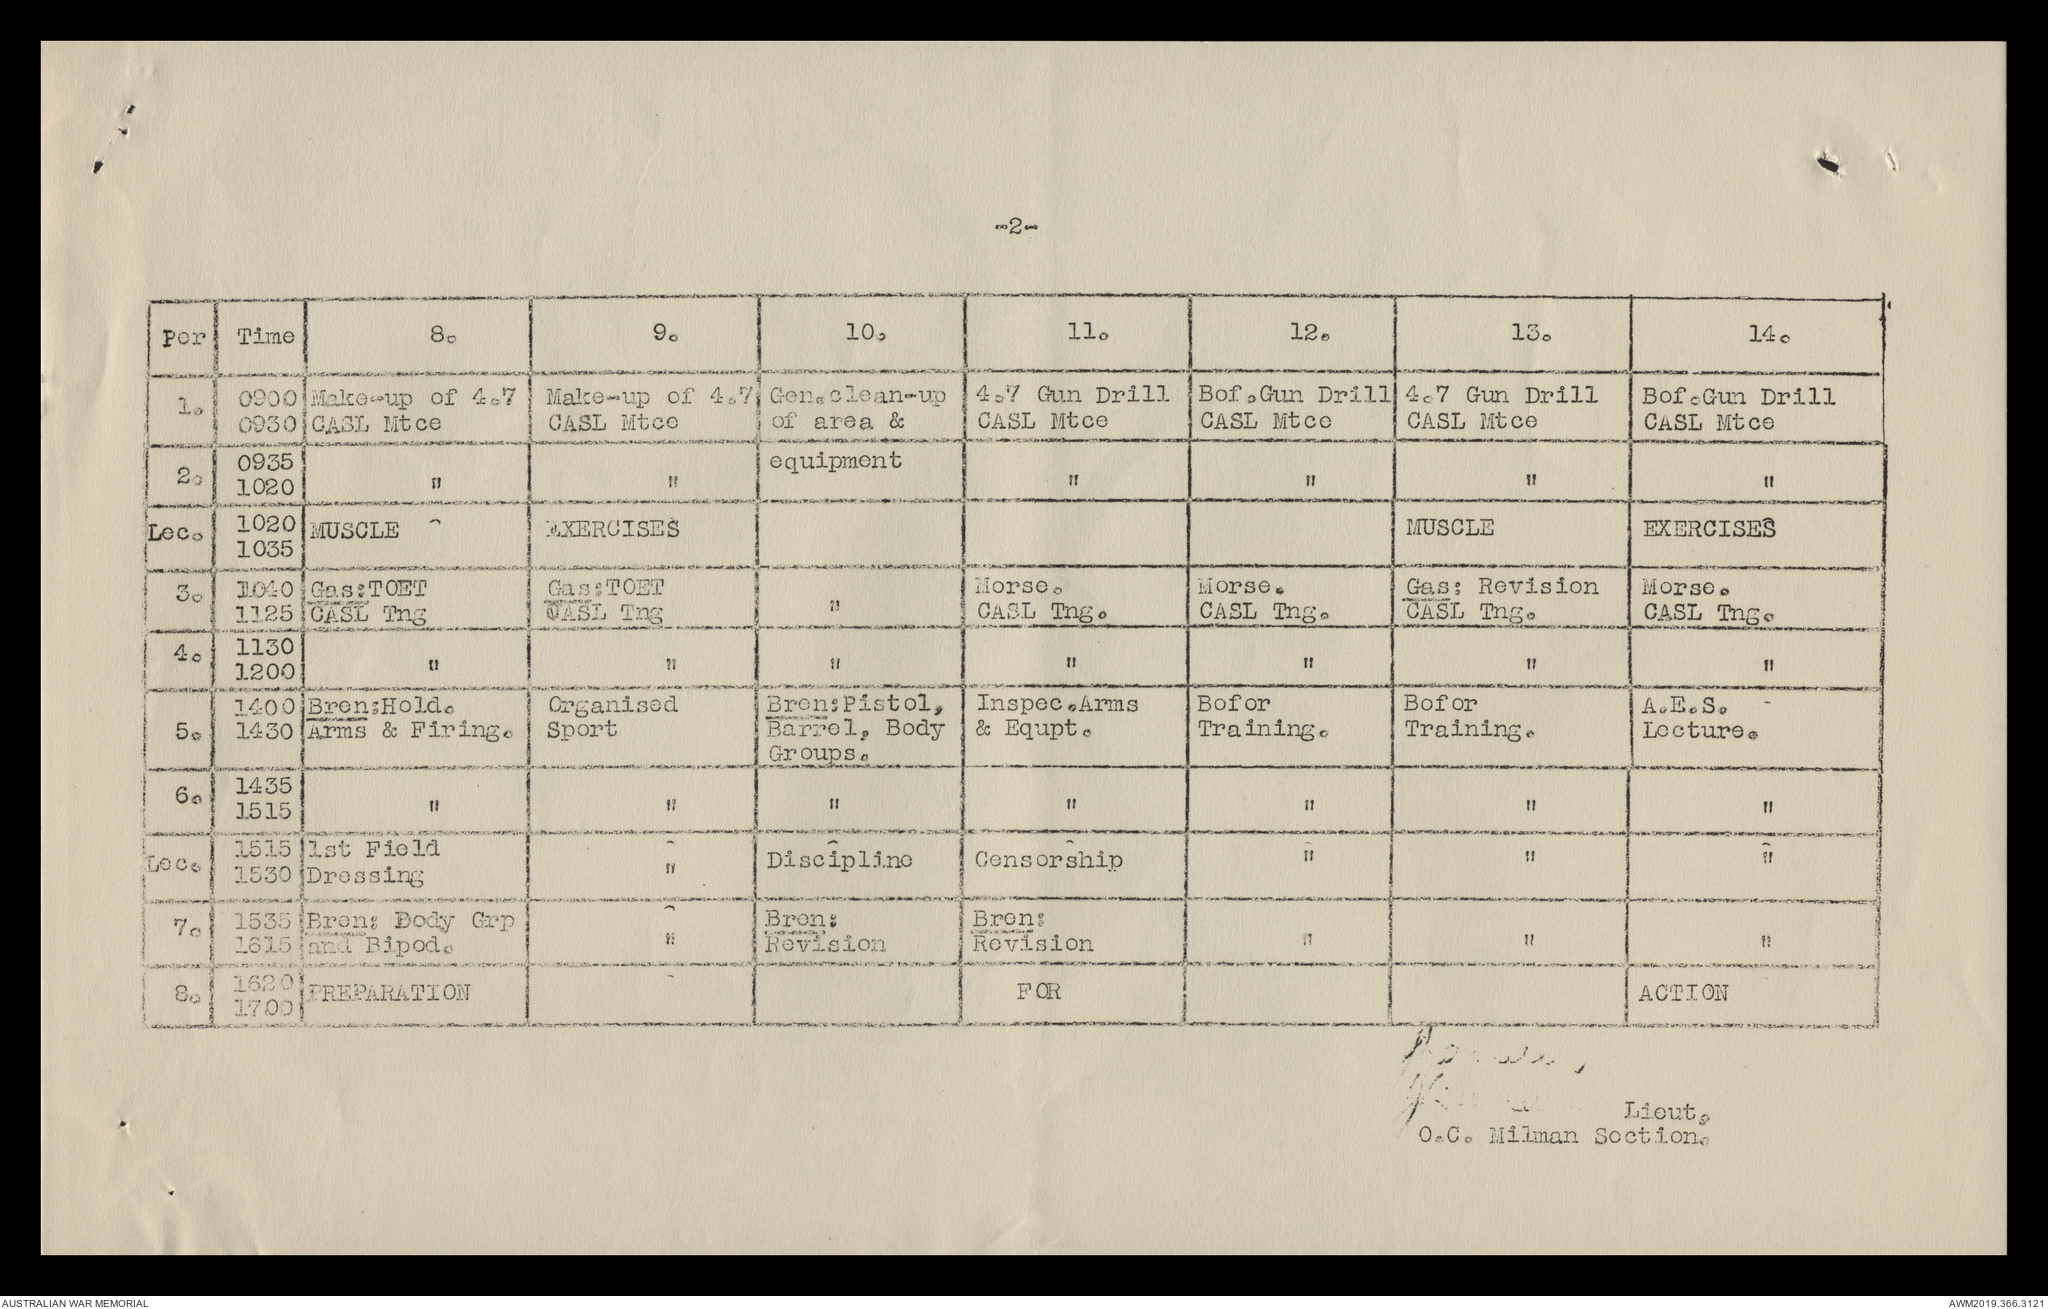 -2-
Per Time 8. 9. 10. 11. 12. 13. 14.
1. 0900 Make-up of 4.7 Make-up of 4.7 Gen.clean-up 4.7 Gun Drill Bof.Gun Drill 4.7 Gun Drill Bof.Gun Drill
0930 CASL Mtce CASL Mtce of area & CASL Mtce CASL Mtce CASL Mtce CASL Mtce
2. 0935 equipment
1020 " " " " " "
Lec. 1020 MUSCLE EXERCISES MUSCLE EXERCISES
1035
3. 1040 Gas:TOET Gas:TOET " Morse. Morse. Gas: Revision Morse.
1125 CASL Tng CASL Tng CASL Tng. CASL Tng. CASL Tng. CASL Tng.
4. 1130
1200 " " " " " " "
5. 1400 Bren:Hold. Organised Bren:Pistol, Inspec.Arms Bofor Bofor A.E.S.
1430 Arms & Firing. Sport Barrel, Body & Equpt. Training. Training. Lecture.
Groups.
6. 1435
1515 " " " " " " "
Lec. 1515 1st Field " Discipline Censorship " " "
1530 Dressing
7. 1535 Bren: Body Grp " Bren: Bren: " " "
1615 and Bipod. Revision Revision
8. 1620 PREPARATION FOR ACTION
1700
Lieut.
O.C. Milman Section.
AUSTRALIAN WAR MEMORIAL AWM2019.366.3121